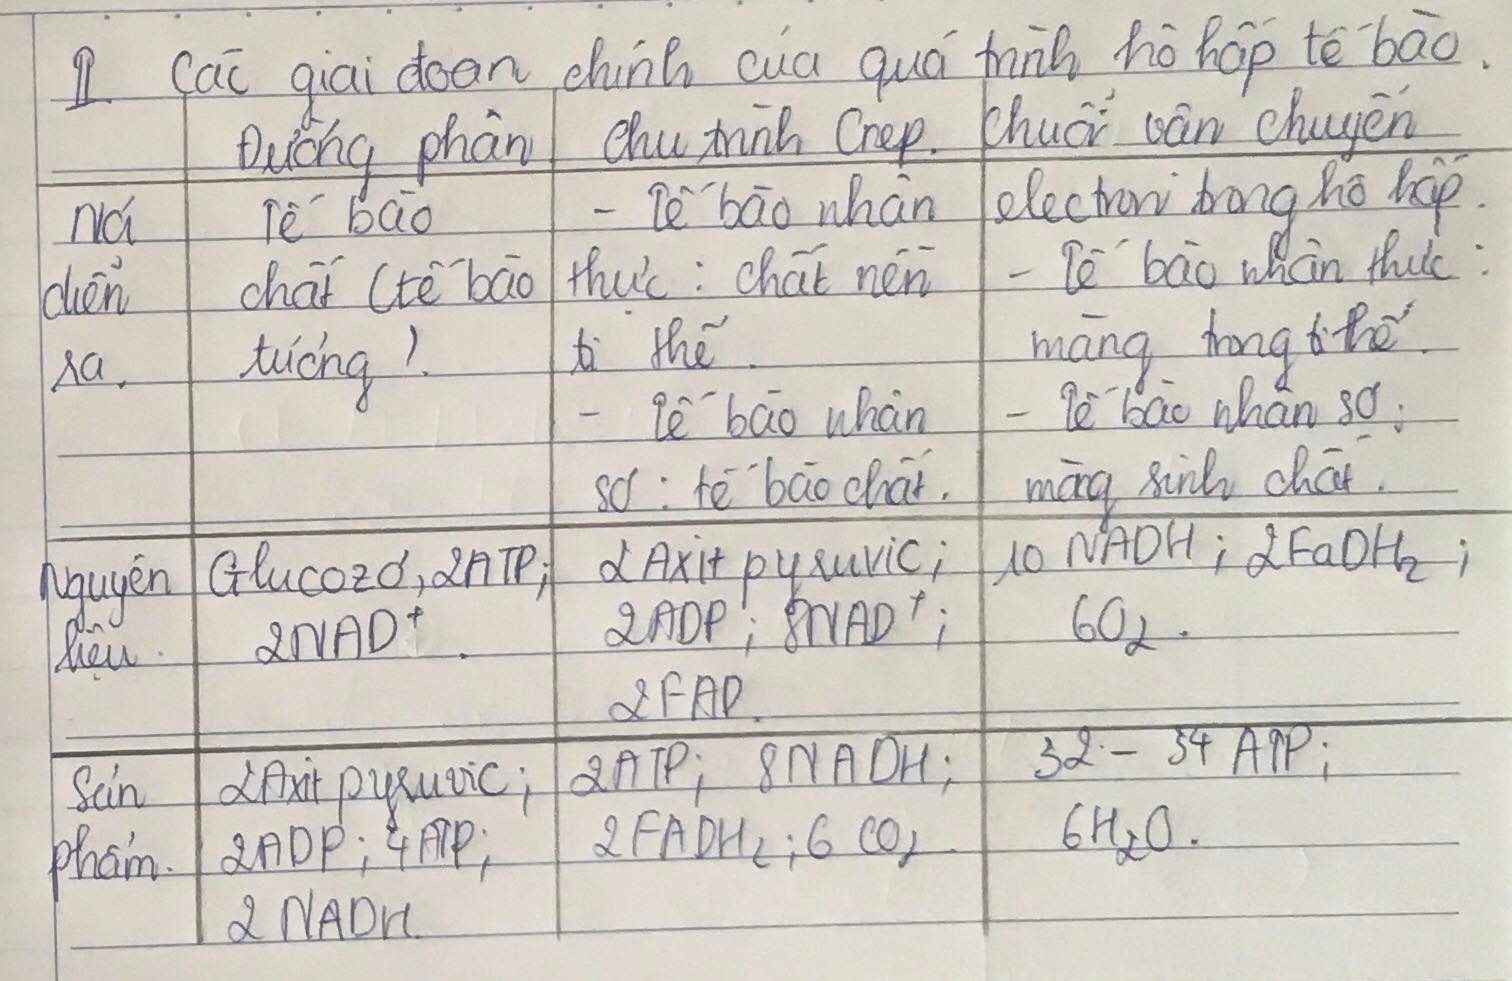 II Các giai đoạn chính của quá trình hô hấp tế bào.
Đường phân chu trình Crep. Chuỗi vận chuyển
Nơi Tế bào - Tế bào nhân electron trong hô hấp.
diễn chất (tế bào thực: chất nền - Tế bào nhân thực:
ra. tương). ti thể. màng trong ti thể.
- Tế bào nhân - Tế bào nhân sơ:
sơ: tế bào chất. màng sinh chất.
Nguyên Glucozơ, 2ATP; 2Axit pyruvic; 10 NADH; 2FaDH₂;
liệu. 2NAD⁺. 2ADP; 8NAD⁺; 6O₂.
2FAD.
Sản 2Axit pyruvic; 2ATP; 8NADH; 32 - 34 ATP;
phẩm. 2ADP; 4ATP; 2FADH₂; 6 CO₂ 6H₂O.
2 NADH